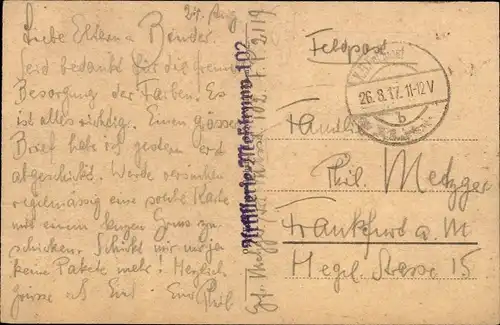 24. Aug.
Liebe Eltern u. Brüder.
Seid bedankt für die
Besorgung der Farben. Es
ist alles richtig. Einen grossen
Brief hab ich gestern erst
abgeschickt. Werde versuchen
regelmässig eine solche Karte
mit einem kurzen Gruss zu
schicken. Schickt mir nur ja
keine Pakete mehr! Herzlich
grüsse ich Euch Euer Phil
Artillerie-Messtrupp 102
Metzger 102 F.P. 2119
Feldpost
26.8.17. 11-12V
b
Familie
Phil. Metzger
Frankfurt a. M
Hegel Strasse 15